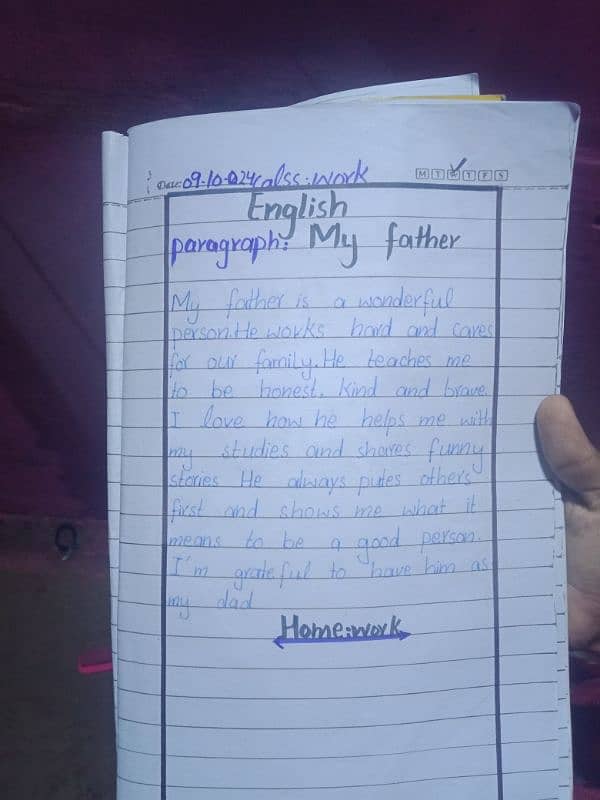 Date: 09-10-024 calss:work M T W T F S
English
paragraph: My father
My father is a wonderful
person.He works hard and cares
for our family.He teaches me
to be honest, kind and brave.
I love how he helps me with
my studies and shares funny
stories He always putes others
first and shows me what it
means to be a good person.
I'm grateful to have him as
my dad
Home:work